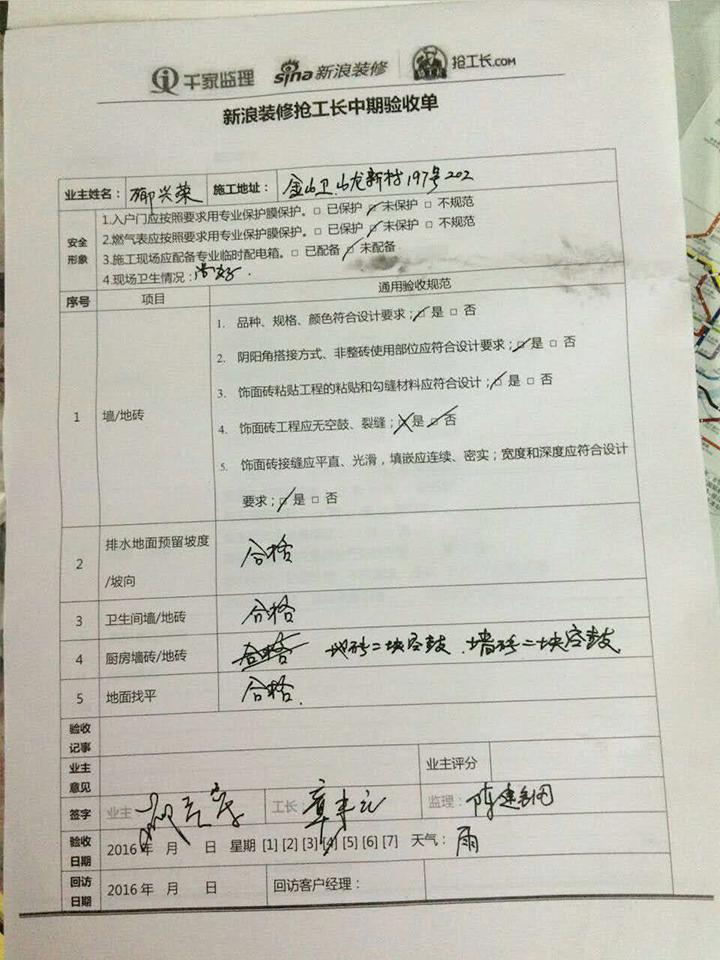 千家监理 sina 新浪装修 抢工长.COM
新浪装修抢工长中期验收单
业主姓名： 兴荣 施工地址： 金山卫山龙新村197号202
安全形象
1.入户门应按照要求用专业保护膜保护。□ 已保护 □ 未保护 □ 不规范
2.燃气表应按照要求用专业保护膜保护。□ 已保护 □ 未保护 □ 不规范
3.施工现场应配备专业临时配电箱。□ 已配备 □ 未配备
4.现场卫生情况：尚好.
序号 项目 通用验收规范
1 墙/地砖
1. 品种、规格、颜色符合设计要求；□ 是 □ 否
2. 阴阳角搭接方式、非整砖使用部位应符合设计要求；□ 是 □ 否
3. 饰面砖粘贴工程的粘贴和勾缝材料应符合设计；□ 是 □ 否
4. 饰面砖工程应无空鼓、裂缝；□ 是 □ 否
5. 饰面砖接缝应平直、光滑，填嵌应连续、密实；宽度和深度应符合设计
要求；□ 是 □ 否
2 排水地面预留坡度/坡向 合格
3 卫生间墙/地砖 合格
4 厨房墙砖/地砖 合格 地砖二块空鼓.墙砖二块空鼓
5 地面找平 合格.
验收记事
业主意见 业主评分
签字 业主 工长： 监理： 陈建
验收日期 2016 年 月 日 星期 [1] [2] [3] [4] [5] [6] [7] 天气： 雨
回访日期 2016 年 月 日 回访客户经理：